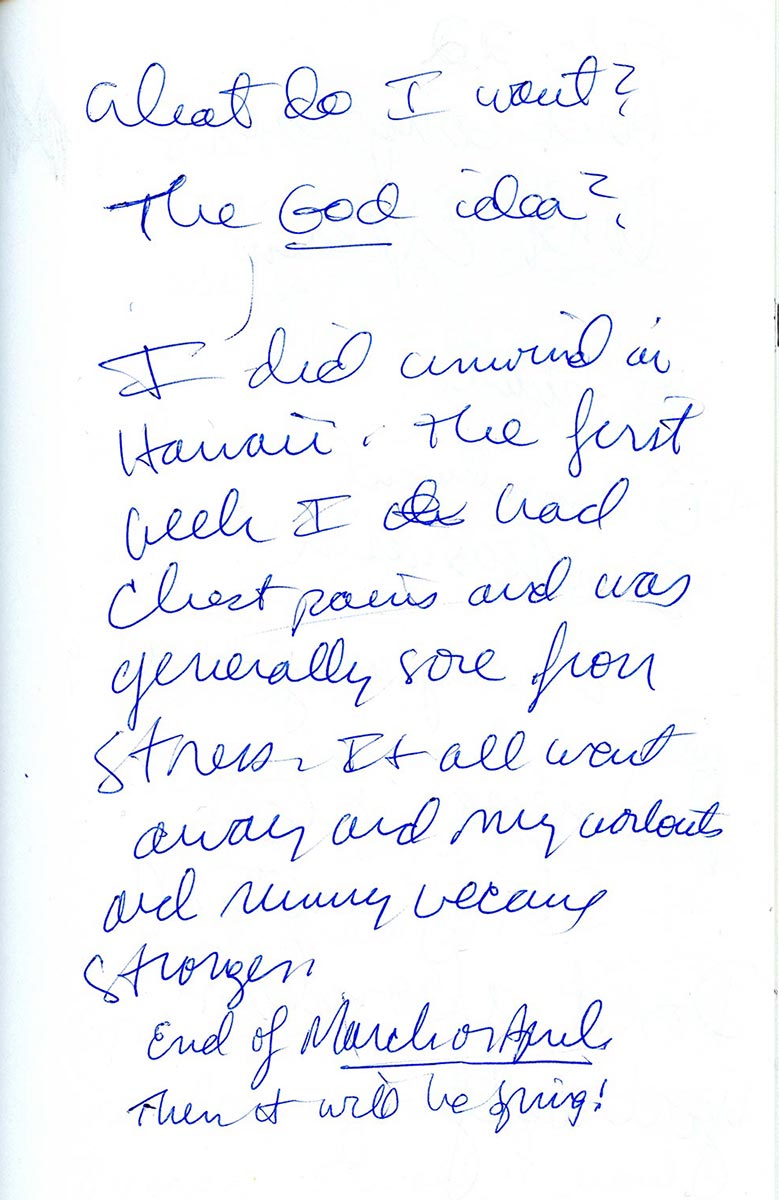 What do I want?
The God idea?
I did unwind in
Hawaii. The first
week I had
chest pains and was
generally sore from
stress. It all went
away and my workouts
and running became
stronger.
End of March or April.
Then it will be spring!